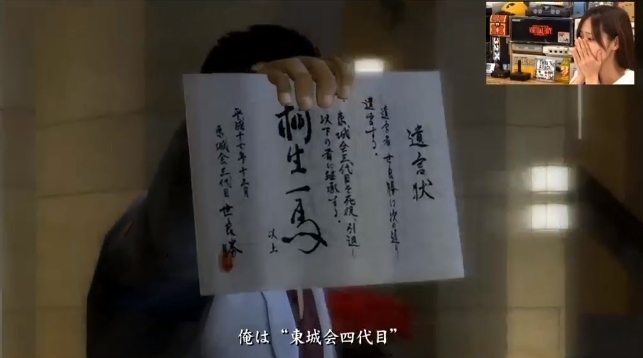 遺言状
遺言者 世良勝は次の通り
遺言する。
東城会三代目を死後、引退し
以下の者に継承する。
桐生一馬
以上
平成十七年十二月
東城会三代目 世良勝
俺は“東城会四代目”